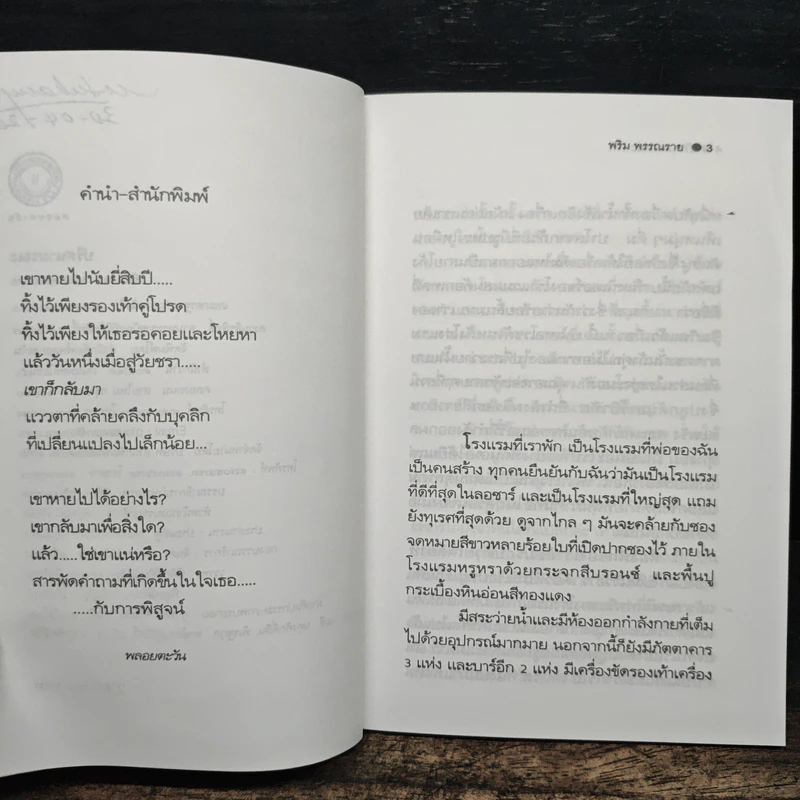 คำนำ-สำนักพิมพ์
เขาหายไปนับยี่สิบปี.....
ทิ้งไว้เพียงรองเท้าคู่โปรด
ทิ้งไว้เพียงให้เธอรอคอยและโหยหา
แล้ววันหนึ่งเมื่อสู่วัยชรา.....
เขาก็กลับมา
แววตาที่คล้ายคลึงกับบุคลิก
ที่เปลี่ยนแปลงไปเล็กน้อย...
เขาหายไปได้อย่างไร?
เขากลับมาเพื่อสิ่งใด?
แล้ว.....ใช่เขาแน่หรือ?
สารพัดคำถามที่เกิดขึ้นในใจเธอ.....
.....กับการพิสูจน์
พลอยตะวัน
พริม พรรณราย ● 3
โรงแรมที่เราพัก เป็นโรงแรมที่พ่อของฉัน
เป็นคนสร้าง ทุกคนยืนยันกับฉันว่ามันเป็นโรงแรม
ที่ดีที่สุดในลอซาร์ และเป็นโรงแรมที่ใหญ่สุด แถม
ยังทุเรศที่สุดด้วย ดูจากไกล ๆ มันจะคล้ายกับซอง
จดหมายสีขาวหลายร้อยใบที่เปิดปากซองไว้ ภายใน
โรงแรมหรูหราด้วยกระจกสีบรอนซ์ และพื้นปู
กระเบื้องหินอ่อนสีทองแดง
มีสระว่ายน้ำและมีห้องออกกำลังกายที่เต็ม
ไปด้วยอุปกรณ์มากมาย นอกจากนี้ก็ยังมีภัตตาคาร
3 แห่ง และบาร์อีก 2 แห่ง มีเครื่องขัดรองเท้าเครื่อง